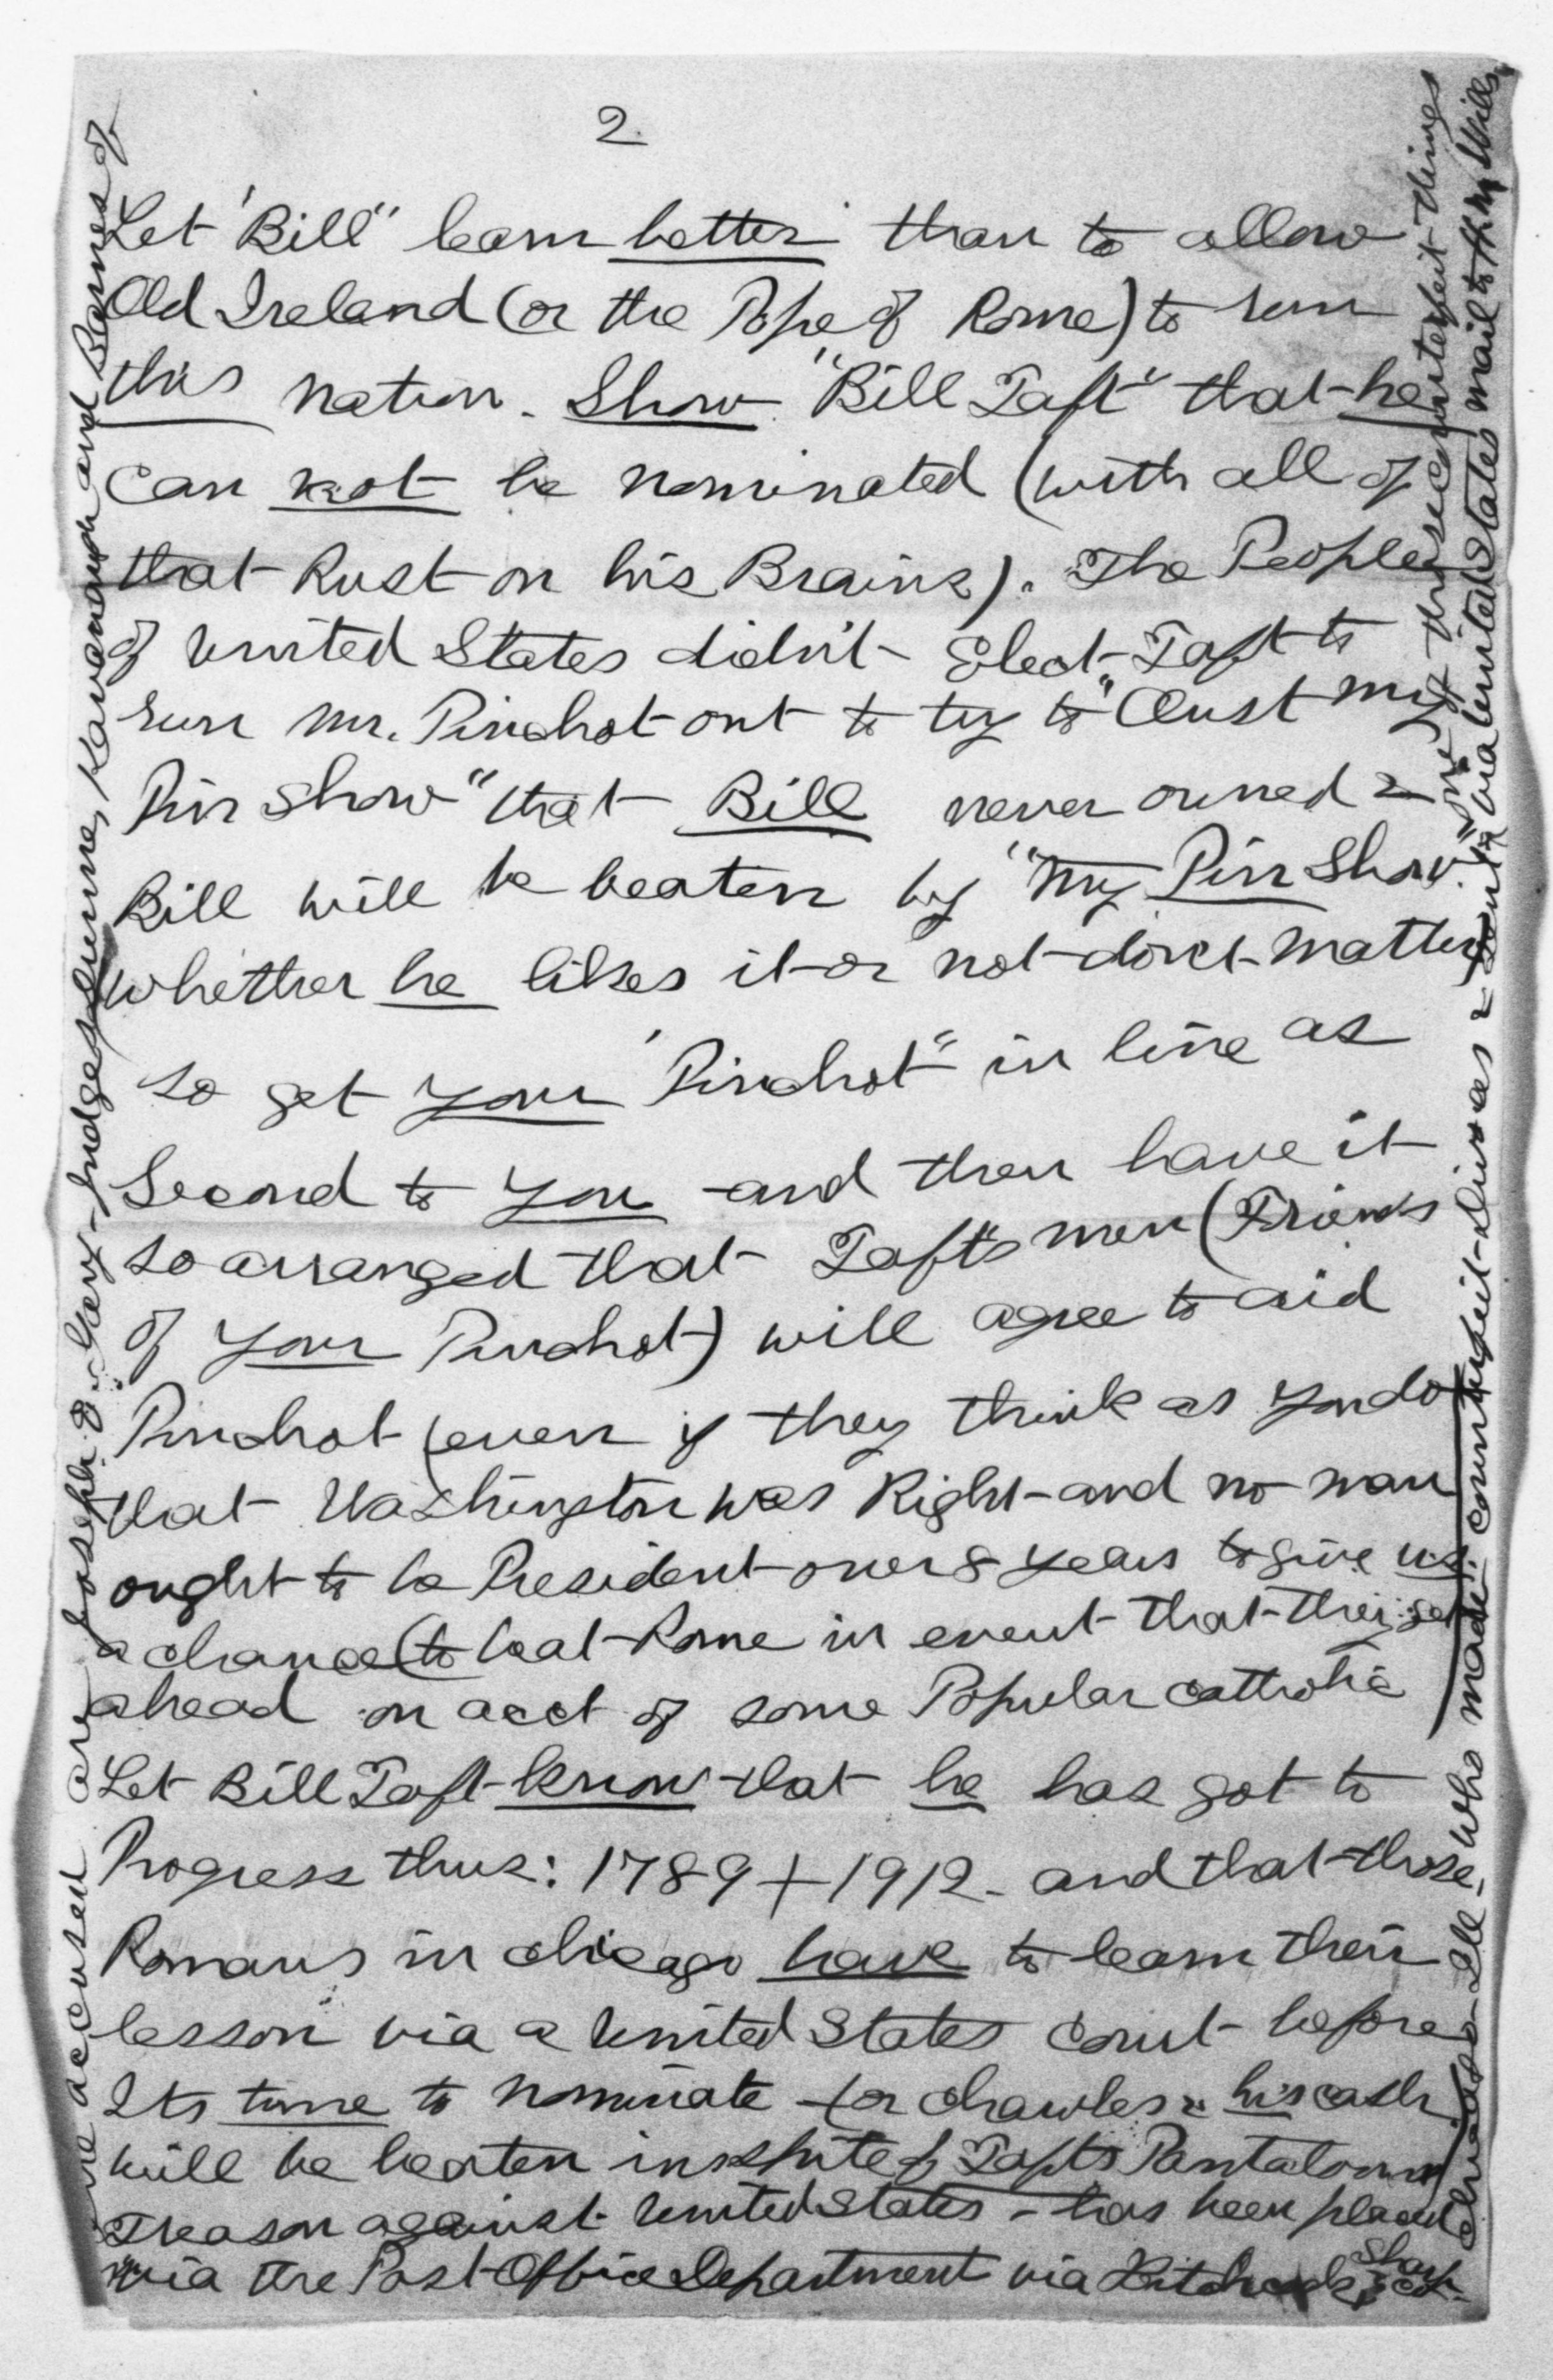 2
Let "Bill" learn better than to allow
Old Ireland (or the Pope of Rome) to run
this nation. Show "Bill Taft" that he
can not be nominated (with all of
that Rust on his Brains). The People
of United States didn't Elect Taft to
run Mr. Pinchot out to try to "Oust my
Pin show" that Bill never owned &
Bill will be beaten by "My Pin Show".
Whether he likes it or not don't matter
so get your "Pinchot" in line as
Second to you and then have it
so arranged that Taft's men (Friends
of your Pinchot) will agree to aid
Pinchot (even if they think as you do
that Washington was Right and no man
ought to be President over 8 years to give us
a chance (to beat Rome in event that they get
ahead on acct of some Popular Catholic
Let Bill Taft know that he has got to
Progress thus: 1789 + 1912 - and that those
Romans in Chicago have to learn their
lesson via a United States Court before
Its time to nominate for Chawles & his cash
will be beaten inspite of Tafts Pantaloons
Treason against United States - has been placed
via the Post Office Department via Hitchcock
accused are Joseph E. Gary - Judges Dunne, Kavanaugh and Barnes of
Chicago Ill. who made counterfeit Divs as & sent via United States mail to
"One" of those counterfeit things